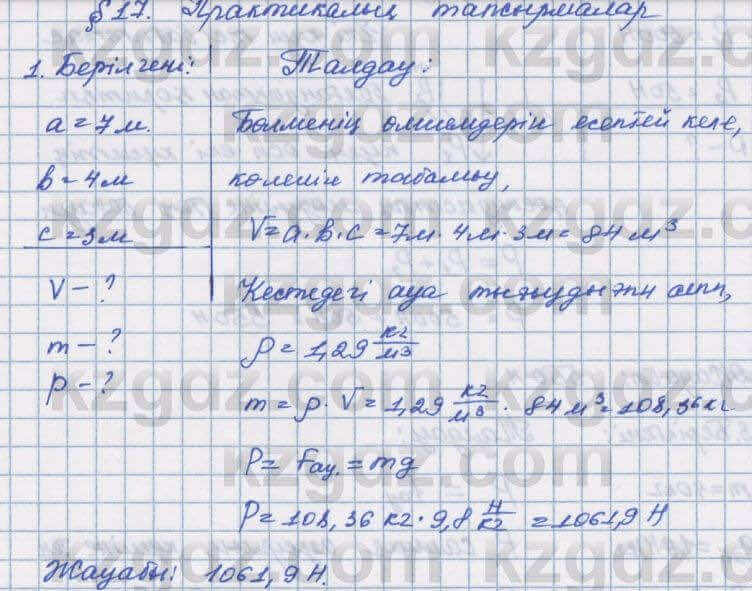 § 17. Практикалық тапсырмалар
1. Берілгені: Талдау:
a = 7 м. Бөлменің өлшемдерін есептей келе,
b = 4 м көлемін табамыз,
c = 3 м V = a · b · c = 7 м · 4 м · 3 м = 84 м³
V – ? Кестедегі ауа тығыздығын алып,
m – ? ρ = 1,29 кг/м³
p – ?
m = ρ · V = 1,29 кг/м³ · 84 м³ = 108,36 кг
P = Fау. = mg
P = 108,36 кг · 9,8 Н/кг = 1061,9 Н
Жауабы: 1061,9 Н.
kzgdz.com